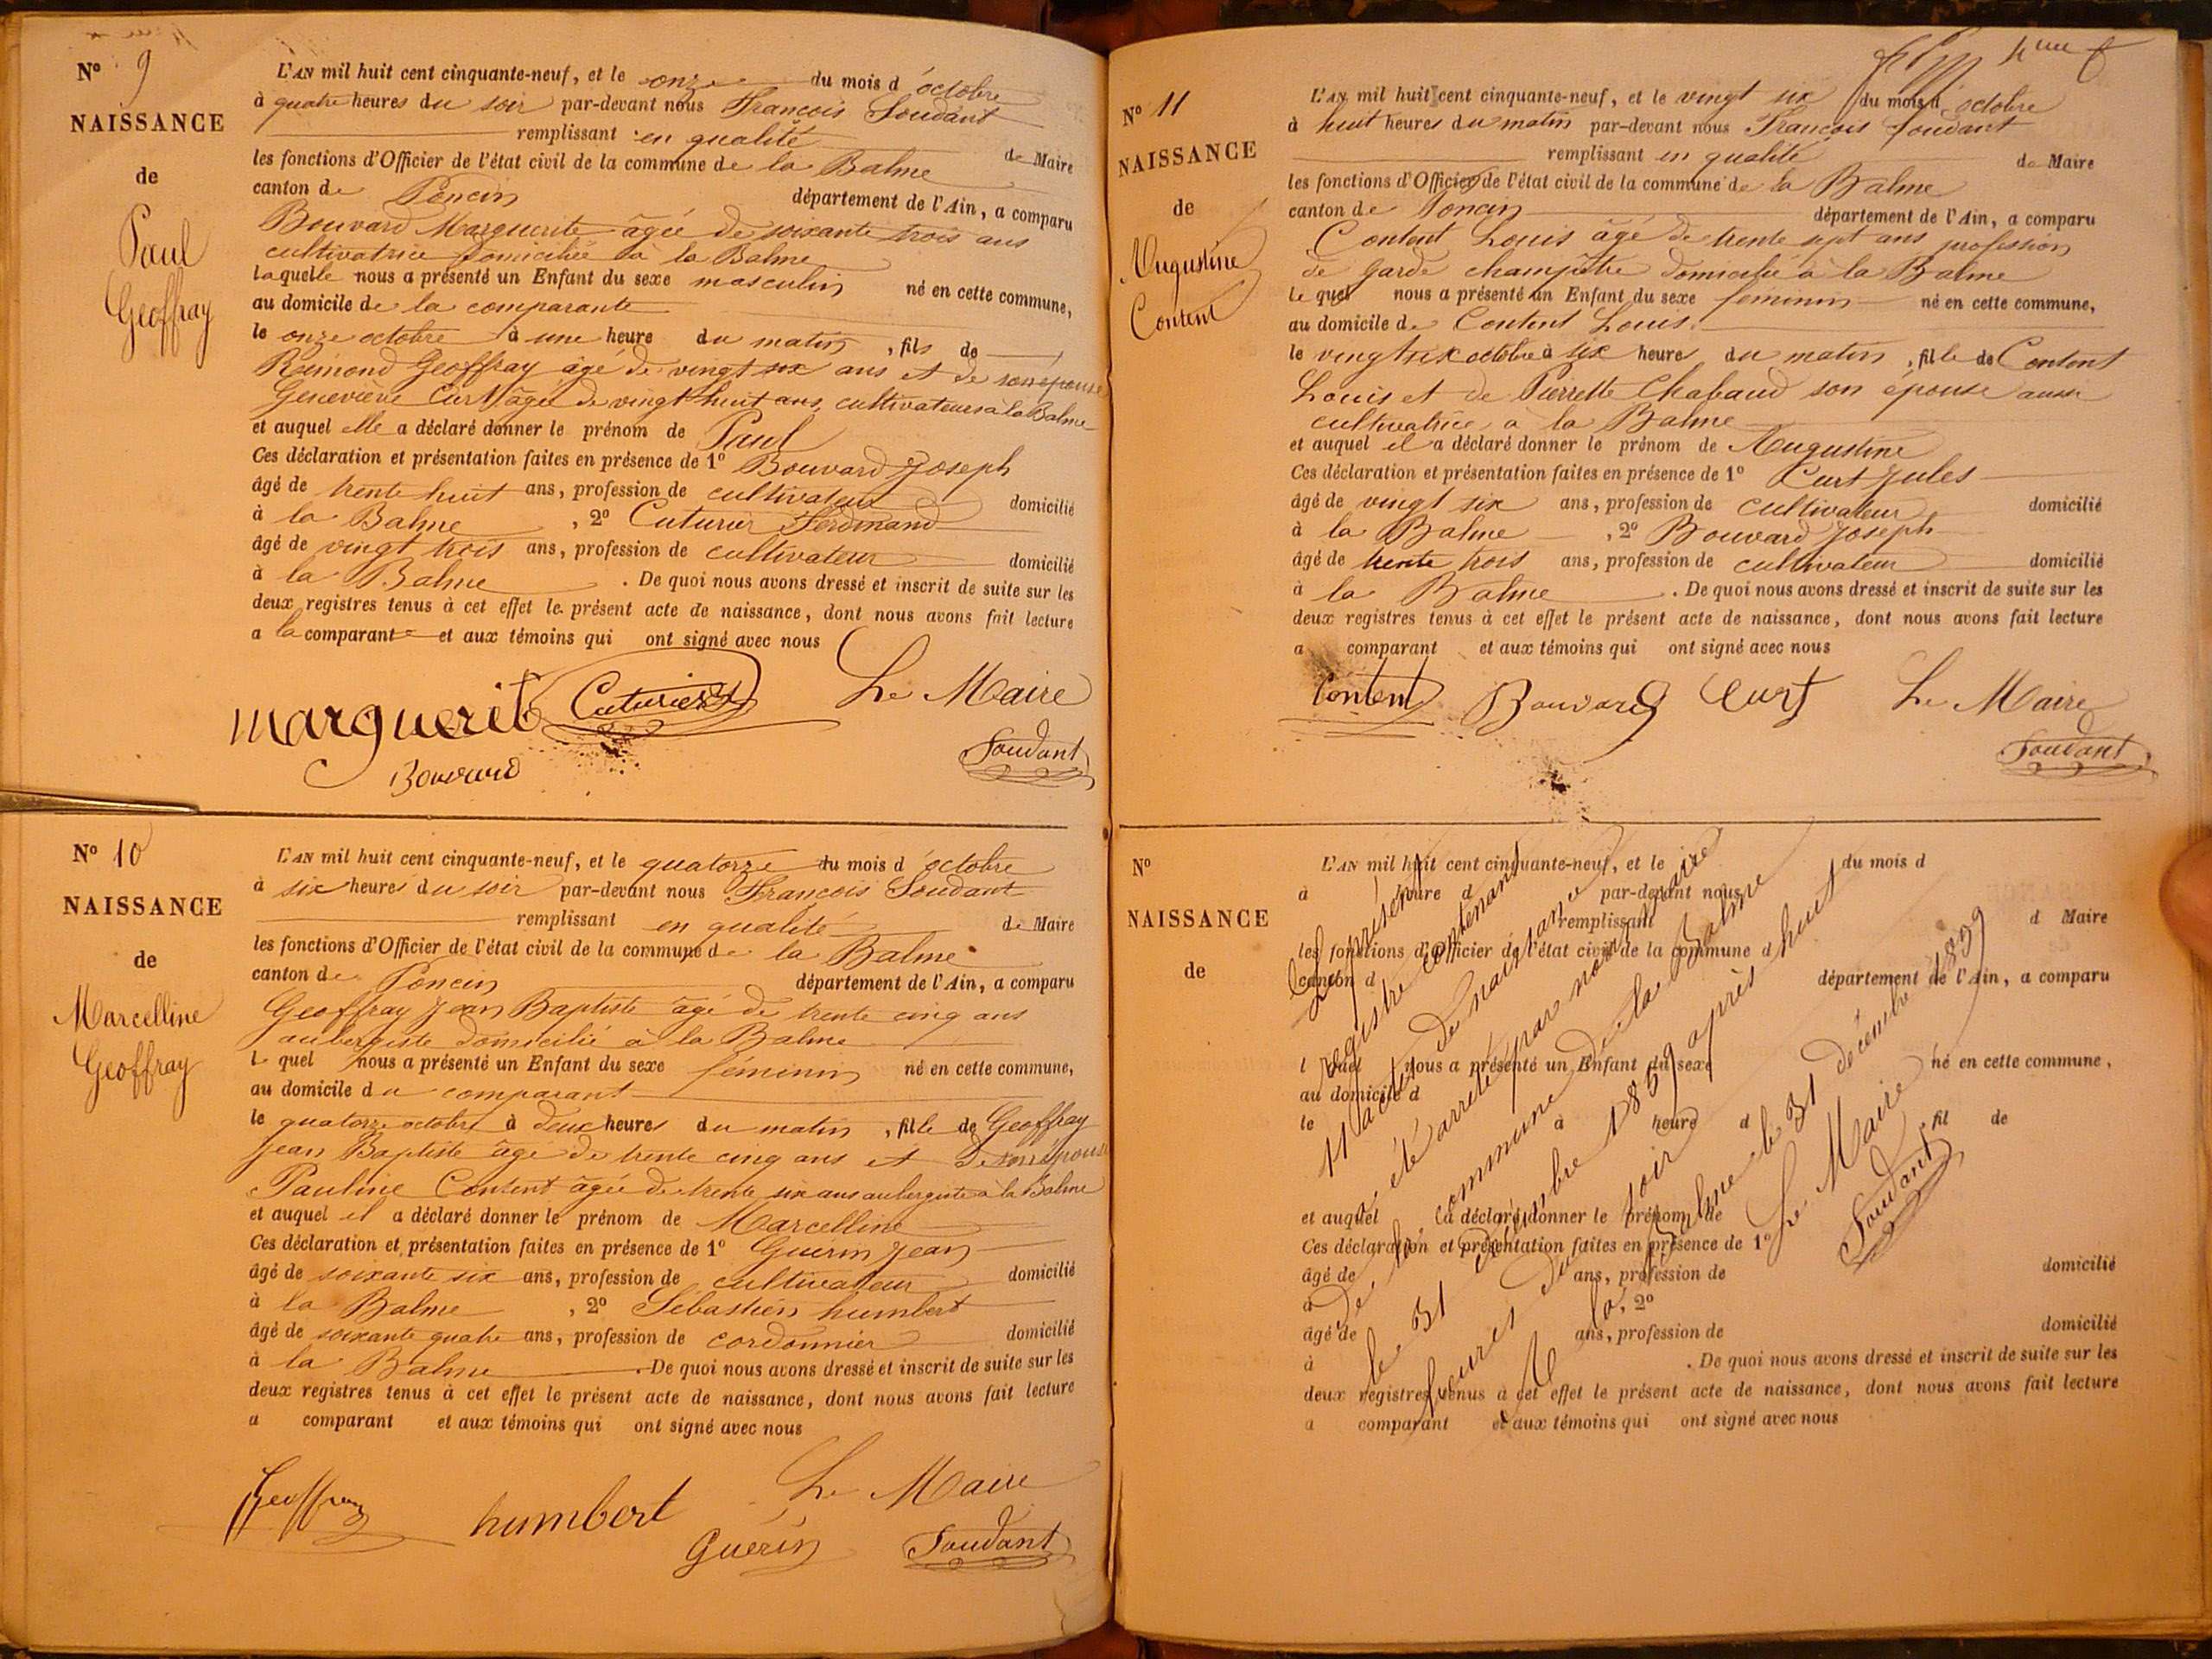 N° 9
NAISSANCE
de
Paul
Geoffray
L'AN mil huit cent cinquante-neuf, et le onze du mois d'octobre
à quatre heures du soir par-devant nous François Soudant
remplissant en qualité de Maire
les fonctions d'Officier de l'état civil de la commune de la Balme
canton de Poncin département de l'Ain, a comparu
Bouvard Marguerite âgée de soixante trois ans
cultivatrice domiciliée à la Balme
laquelle nous a présenté un Enfant du sexe masculin né en cette commune,
au domicile de la comparante
le onze octobre à une heure du matin, fils de
Reimond Geoffray âgé de vingt six ans et de son épouse
Geneviève Curt âgée de vingt huit ans, cultivateurs à la Balme
et auquel elle a déclaré donner le prénom de Paul
Ces déclaration et présentation faites en présence de 1° Bouvard Joseph
âgé de trente huit ans, profession de cultivateur domicilié
à la Balme, 2° Cuturier Ferdinand
âgé de vingt trois ans, profession de cultivateur domicilié
à la Balme. De quoi nous avons dressé et inscrit de suite sur les
deux registres tenus à cet effet le présent acte de naissance, dont nous avons fait lecture
a la comparante et aux témoins qui ont signé avec nous
Marguerit Cuturier Le Maire
Bouvard Soudant
N° 10
NAISSANCE
de
Marcelline
Geoffray
L'AN mil huit cent cinquante-neuf, et le quatorze du mois d'octobre
à six heures du soir par-devant nous François Soudant
remplissant en qualité de Maire
les fonctions d'Officier de l'état civil de la commune de la Balme
canton de Poncin département de l'Ain, a comparu
Geoffray Jean Baptiste âgé de trente cinq ans
aubergiste domicilié à la Balme
le quel nous a présenté un Enfant du sexe féminin né en cette commune,
au domicile du comparant
le quatorze octobre à deux heures du matin, fille de Geoffray
Jean Baptiste âgé de trente cinq ans et de son épouse
Pauline Content âgée de trente six ans aubergiste à la Balme
et auquel il a déclaré donner le prénom de Marcelline
Ces déclaration et présentation faites en présence de 1° Guérin Jean
âgé de soixante six ans, profession de cultivateur domicilié
à la Balme, 2° Sébastien humbert
âgé de soixante quatre ans, profession de cordonnier domicilié
à la Balme. De quoi nous avons dressé et inscrit de suite sur les
deux registres tenus à cet effet le présent acte de naissance, dont nous avons fait lecture
a comparant et aux témoins qui ont signé avec nous
Geoffray humbert Le Maire
Guérin Soudant
N° 11
NAISSANCE
de
Augustine
Content
L'AN mil huit cent cinquante-neuf, et le vingt six du mois d'octobre
à huit heures du matin par-devant nous François Soudant
remplissant en qualité de Maire
les fonctions d'Officier de l'état civil de la commune de la Balme
canton de Poncin département de l'Ain, a comparu
Content Louis âgé de trente sept ans profession
de garde champêtre domicilié à la Balme
le quel nous a présenté un Enfant du sexe féminin né en cette commune,
au domicile de Content Louis
le vingt six octobre à six heures du matin, fille de Content
Louis et de Pierrette Chabaud son épouse aussi
cultivatrice à la Balme
et auquel il a déclaré donner le prénom de Augustine
Ces déclaration et présentation faites en présence de 1° Curt Jules
âgé de vingt six ans, profession de cultivateur domicilié
à la Balme, 2° Bouvard Joseph
âgé de trente trois ans, profession de cultivateur domicilié
à la Balme. De quoi nous avons dressé et inscrit de suite sur les
deux registres tenus à cet effet le présent acte de naissance, dont nous avons fait lecture
a comparant et aux témoins qui ont signé avec nous
Content Bouvard Curt Le Maire
Soudant
N°
NAISSANCE
de
L'AN mil huit cent cinquante-neuf, et le du mois d
à heure d par-devant nous
remplissant d Maire
les fonctions d'Officier de l'état civil de la commune d
canton d département de l'Ain, a comparu
l quel nous a présenté un Enfant du sexe né en cette commune,
au domicile d
le à heure d fil de
et auquel a déclaré donner le prénom de
Ces déclaration et présentation faites en présence de 1°
âgé de ans, profession de domicilié
à , 2°
âgé de ans, profession de domicilié
à . De quoi nous avons dressé et inscrit de suite sur les
deux registres tenus à cet effet le présent acte de naissance, dont nous avons fait lecture
a comparant et aux témoins qui ont signé avec nous
Le présent
registre contenant
11 actes de naissance
a été arrêté par nous maire
de la commune de la Balme
le 31 décembre 1859 après huit
heures du soir
A la Balme le 31 décembre 1859
Le Maire
Soudant